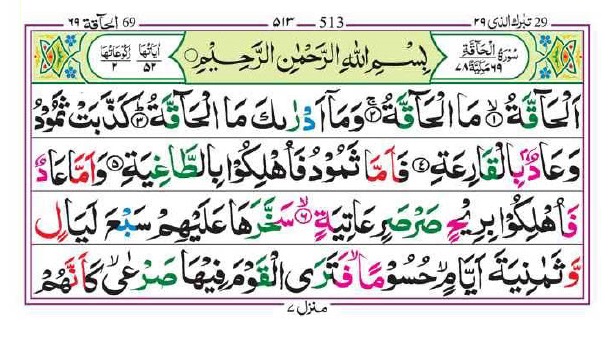 69 الحآقة ٦٩ 513 ٥١٣ 29 تبارك الذي ٢٩
سُوْرَةُ الْحَآقَّةِ ٦٩ مَكِّيَّةٌ ٧٨
بِسْمِ اللّٰهِ الرَّحْمٰنِ الرَّحِيْمِ
اٰيَاتُهَا ٥٢ رُكُوْعَاتُهَا ٢
اَلْحَآقَّةُ ۙ‏﴿۱﴾ مَا الْحَآقَّةُ ۚ‏﴿۲﴾ وَمَاۤ اَدْرٰىكَ مَا الْحَآقَّةُ ؕ‏﴿۳﴾ كَذَّبَتْ ثَمُوْدُ
وَعَادٌۢ بِالْقَارِعَةِ ﴿۴﴾ فَاَمَّا ثَمُوْدُ فَاُهْلِكُوْا بِالطَّاغِيَةِ ﴿۵﴾ وَاَمَّا عَادٌ
فَاُهْلِكُوْا بِرِيْحٍ صَرْصَرٍ عَاتِيَةٍ ۙ‏﴿۶﴾ سَخَّرَهَا عَلَيْهِمْ سَبْعَ لَيَالٍ
وَّثَمٰنِيَةَ اَيَّامٍ ۙ حُسُوْمًا ۙ فَتَرَى الْقَوْمَ فِيْهَا صَرْعٰى ۙ كَاَنَّهُمْ
منزل ٧